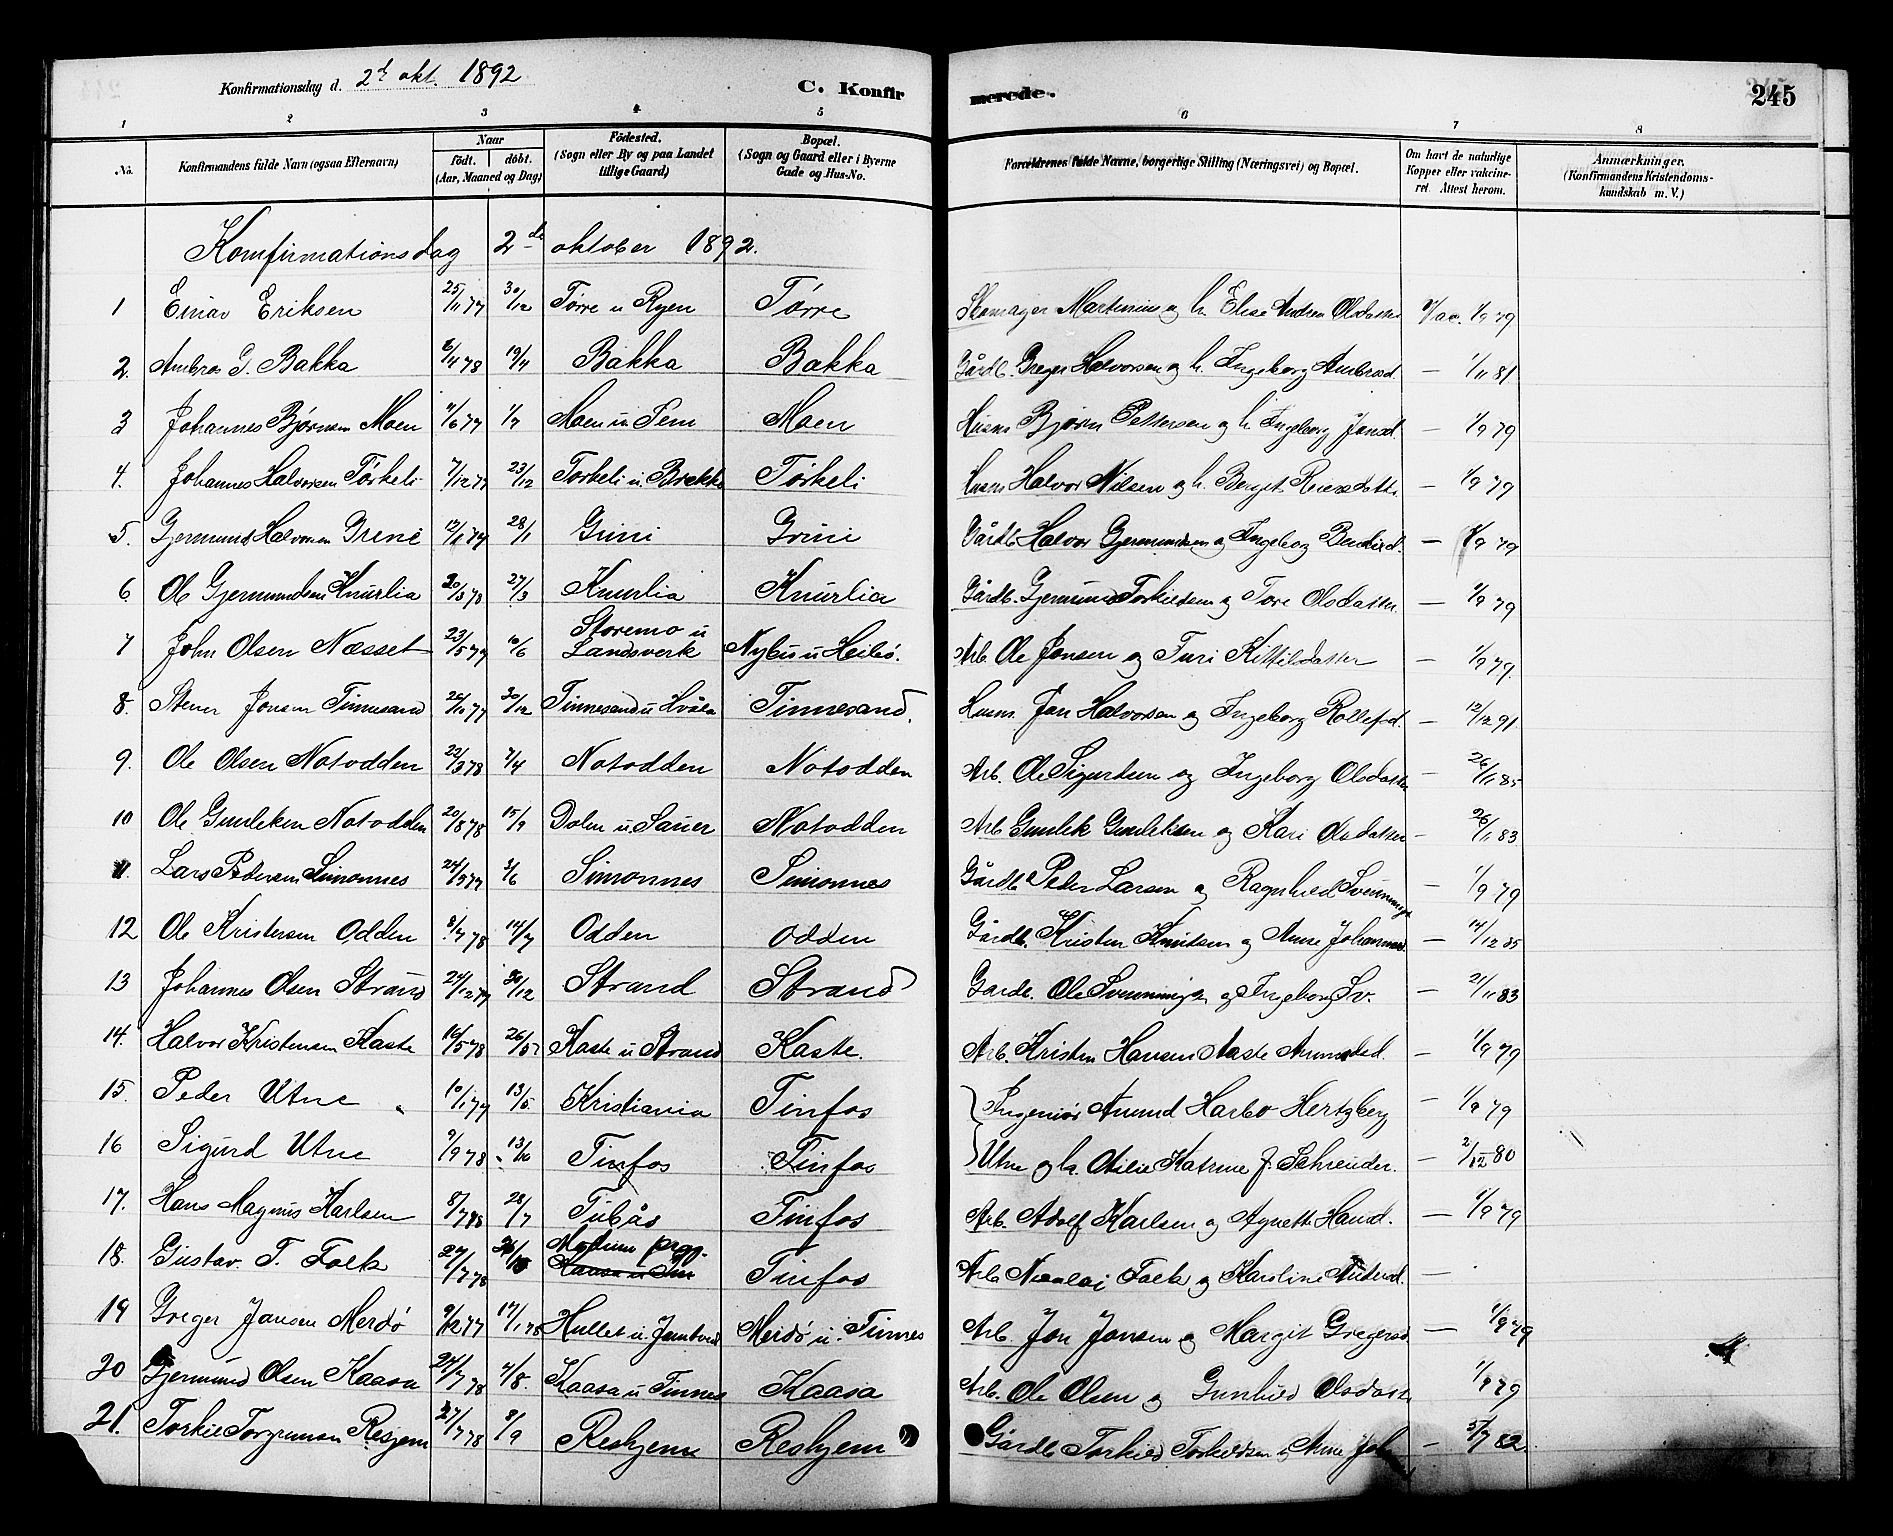 Konfirmationsdag d. 2d okt. 1892
C. Konfirmerede.
245
1 2 3 4 5 6 7 8
No. Konfirmandens fulde Navn (ogsaa Efternavn) Naar födt. döbt. (Aar, Maaned og Dag) Födested. (Sogn eller By og paa Landet tillige Gaard) Bopæl. (Sogn og Gaard eller i Byerne Gade og Hus-No. Forældrenes fulde Navne, borgerlige Stilling (Næringsvei) og Bopæl. Om havt de naturlige Kopper eller vakcineret Attest herom. Anmærkninger. (Konfirmandens Kristendomskundskab m. V.)
Komfirmationsdag 2de oktober 1892.
1 Einar Eriksen 25/11 77 30/12 Tørre u Ryen Tørre Skomager Martinius og h. Elise Andrea Olsdatter 1/9 79
2. Ambros G. Bakka 6/4 78 19/4 Bakka Bakka Gårdb. Greger Halvorsen og h. Ingeborg Ambrosd. — 1/11 81
3 Johannes Bjørnsen Moen /6 77 1/7 Moen u Sem Moen Husm Bjørn Pettersen og h Ingeborg Jonsd. — 1/9 79
4. Johannes Halvorsen Tørkeli 7/12 77 23/12 Torkeli u. Brekke Tørkeli Husm Halvor Nilsen og h. Berget — 1/9 79
5. Gjermund Halvorsen Grene 28/1 Grini Grini Gårdb Halvor Gjermundsen og Ingeborg — 1/9 79
6. Ole Gjermundsen Knurlia 20/3 78 27/3 Knurlia Knurlia Gårdb. Gjermund Torkildsen og Tore Olsdatter — 1/9 79
7 John Olsen Næsset 23/5 77 10/6 Storemo u Landsverk Nybu u Heibö. Arb. Ole Jonsen og Turi Kittilsdatter — 1/9 79
8. Stener Jonsen Tinnesand /11 77 30/12 Tinnesand u Hvåla Tinnesand. Husm. Jon Halvorsen og Ingeborg Rollefsd. — 12/12 91
9. Ole Olsen Notodden 22/3 78 7/4 Notodden Notodden Arb. Ole Sigurdsen og Ingeborg Olsdatter — 26/11 85
10 Ole Gunleksen Notodden 20/8 78 15/9 Dalen u Sauer Notodden Arb Gunlek Gunleksen og Kari Olsdatter — 26/11 83
11. Lars Pedersen Simonnes 24/5 77 3/6 Simonnes Simonnes Gårdb Peder Larsen og Ragnhild — 1/9 79
12 Ole Kristensen Odden 8/7 78 14/7 Odden Odden Gårdb. Kristen Knutsen og Anne Johannesd — 14/12 85
13 Johannes Olsen Strand 24/12 77 30/12 Strand Strand Gårdb. Ole Svenningsen og Ingeborg Sv. — 21/11 83
14. Halvor Kristensen Kaste 16/5 78 26/5 Kaste u Strand Kaste. Arb. Kristen Hansen Aaste — 1/9 79
15. Peder Utne " 10/1 77 13/5. Kristiania Tinfos Ingeniör Amund Harbo Hertzberg — 1/9 79
16 Sigurd Utne 9/9 78 13/10 Tinfos Tinfos Utne og h. Otilie Katrine J. Schreuder. — 2/12 80
17. Hans Magnus Karlsen 8/7 78 28/7 Tubås Tinfos Arb. Adolf Karlsen og Agnette Hansd. — 1/9 79
18. Gustav. T. Falk 27/7 78 Modum prgj. Tinfos Arb Nicolai Falk og Karoline — .
19 Greger Jansen Merdö 9/12 77 17/1 78 Hullet u. Jamtveit Merdö u. Tinnes Arb. Jon Jonsen og Margit Gregersd — 1/9 79
20 Gjermund Olsen Kaasa 24/7 78 4/8. Kaasa u Tinnes Kaasa Arb. Ole Olsen og Gunhild Olsdatt — 1/9 79
21. Torkil Torgrimsen Resjem 27/7 78 8/9 Reshjem Reshjem Gårdb Torkild Torkildsen og Anne — 5/7 82